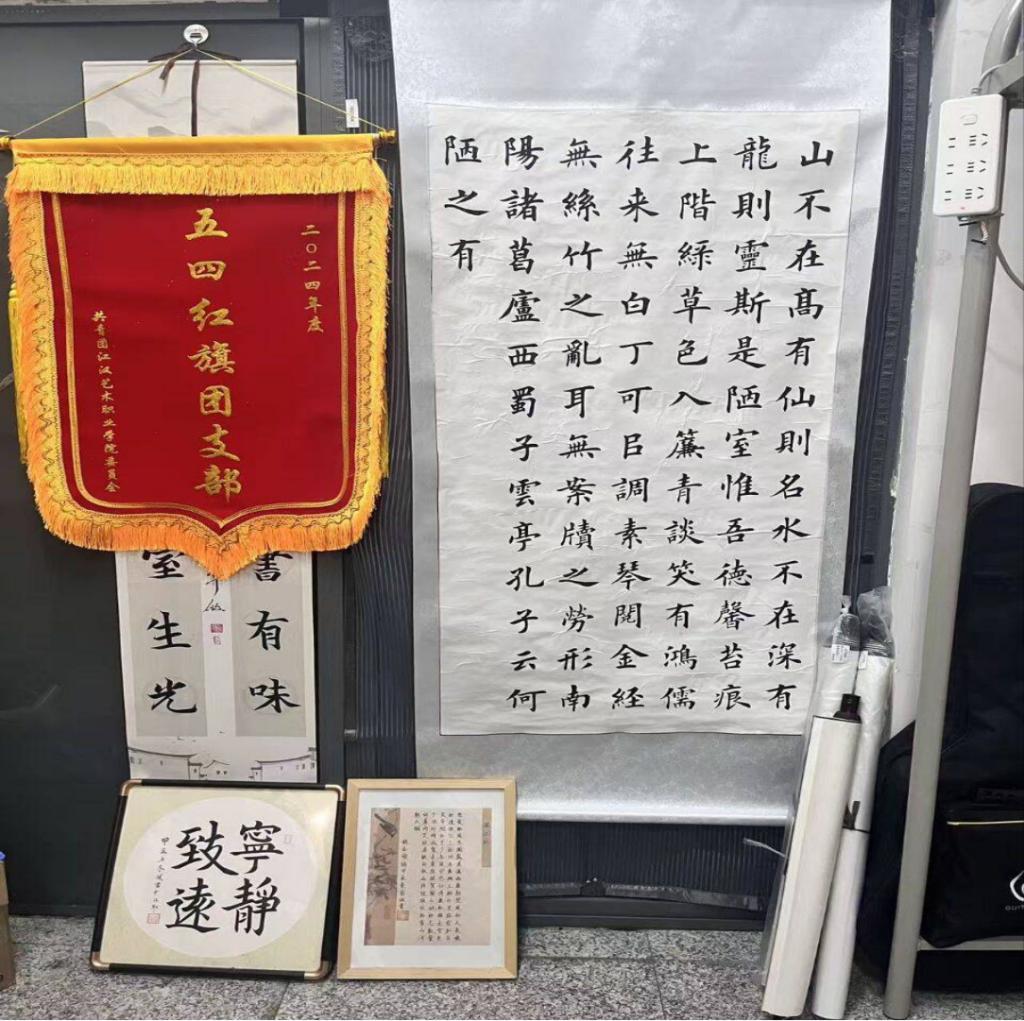 二〇二四年度
五四红旗团支部
共青团江汉艺术职业学院委员会
山不在髙有仙則名水不在深有
龍則靈斯是陋室惟吾德馨苔痕
上階緑草色入簾青談笑有鴻儒
往来無白丁可㠯調素琴閱金経
無絲竹之亂耳無案牘之勞形南
陽諸葛廬西蜀子雲亭孔子云何
陋之有
書有味
室生光
寧靜
致遠